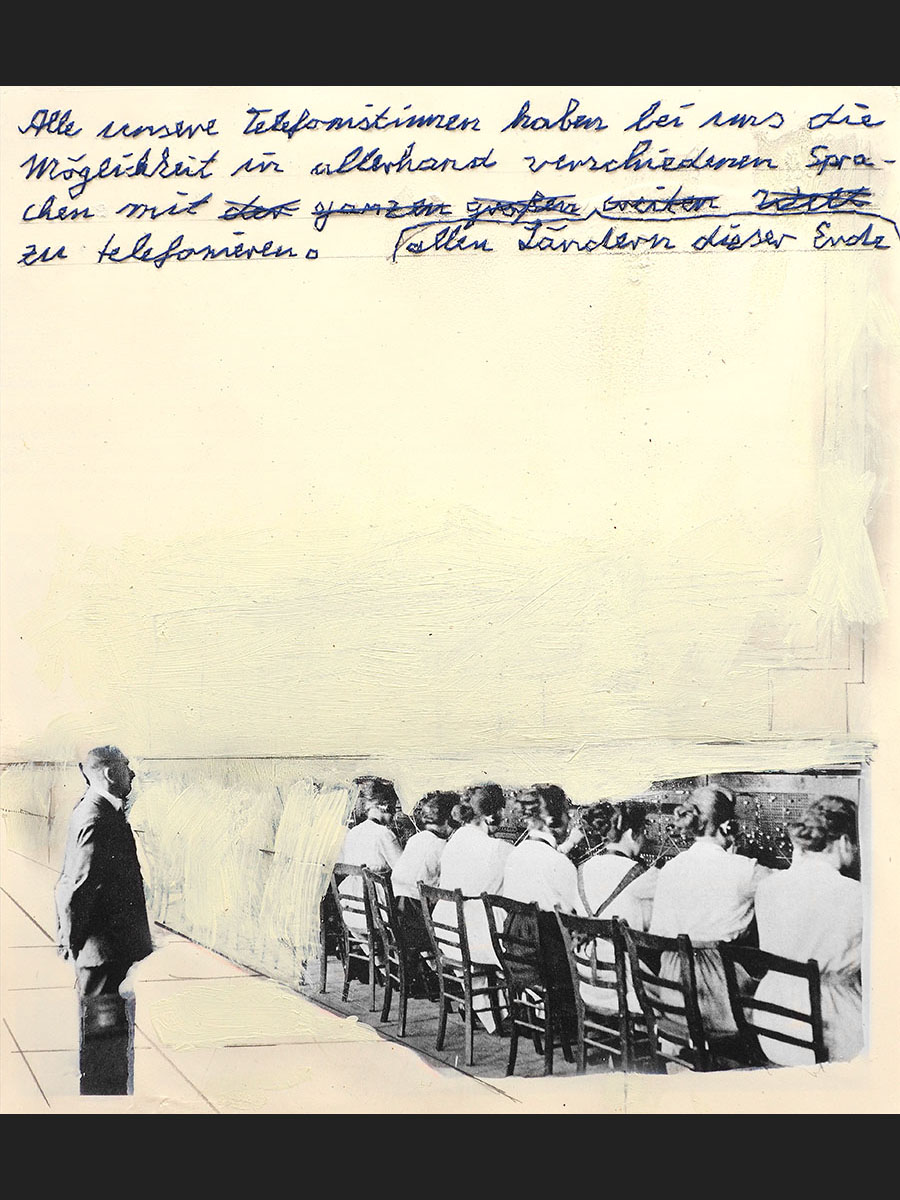 Alle unsere Telefonistinnen haben bei uns die
Möglichkeit in allerhand verschiedenen Spra-
chen mit der ganzen großen weiten Welt
zu telefonieren. (allen Ländern dieser Erde